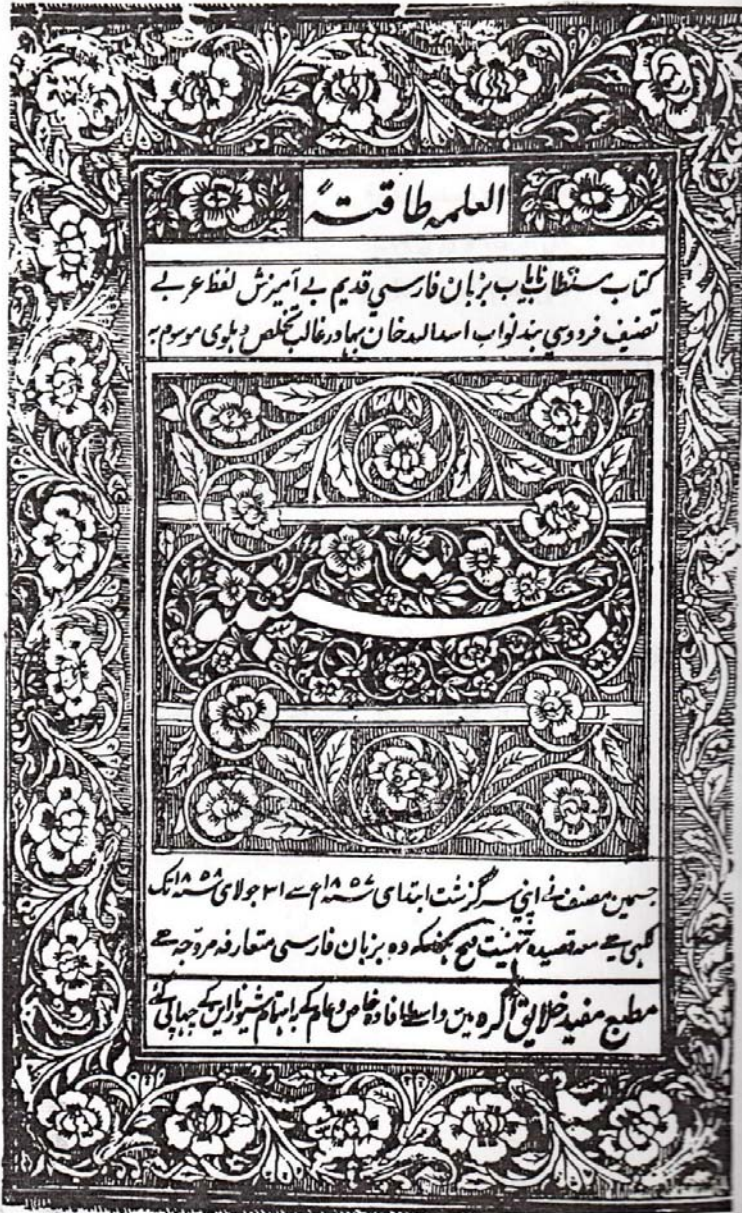 العلمہ طاقتہً
کتاب مستطاب نایاب بزبان فارسي قدیم بے آمیزش لفظ عربے
تصنیف فردوسي ہند نواب اسد اللہ خان بہادر غالب تخلص دہلوی موسوم بہ
دستنبو
جسمین مصنف نے اپنی سرگزشت ابتدای ۱۸۵۷ع سے ۳۱ جولای ۱۸۵۸ تک
لکہی ہے معہ قصیدہ تہنیت فتح ہند کہ وہ بزبان فارسی متعارفہ مروّجہ ہے
مطبع مفید خلایق آگرہ مین واسطے افادہ خاص و عام کے باہتمام شیونراین کے چہاپی گئے